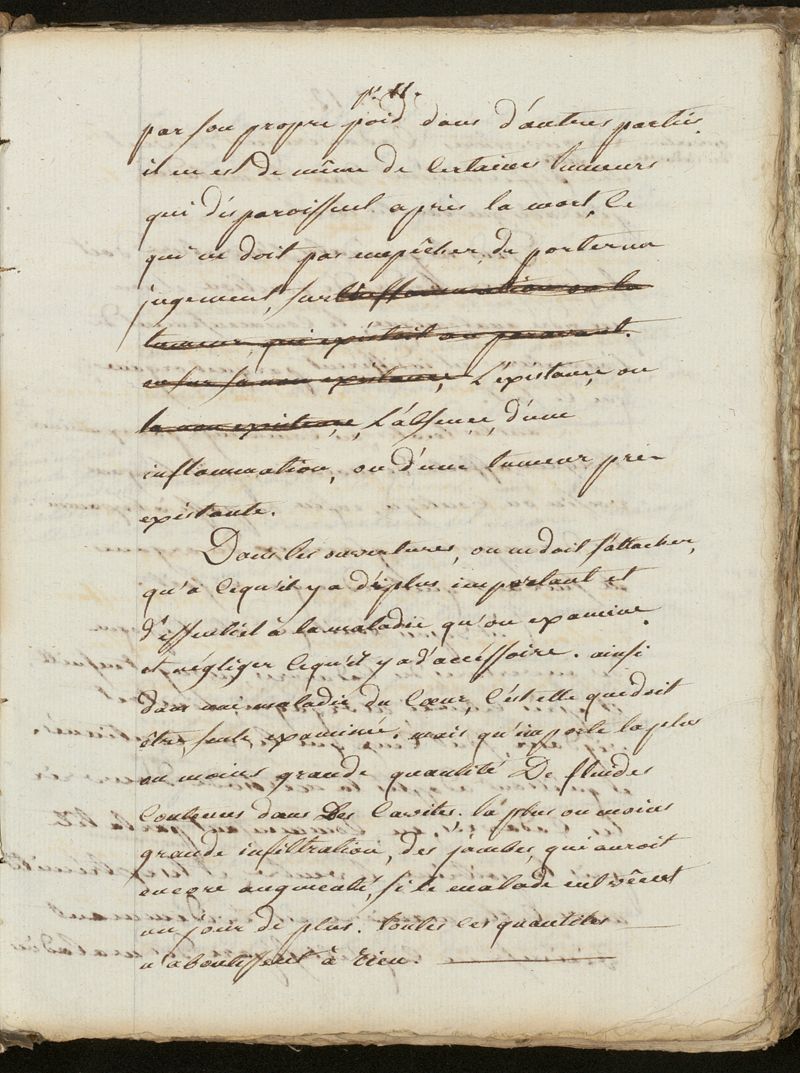 pe. 11.
par son propre poid dans d'autres parties.
il en est de même de certaines tumeurs
qui disparoissent après la mort, Ce
qui ne doit pas empêcher, de porter un
jugement, sur l'inflammation ou la
tumeur, qui existoit au paravant.
ou sur sa non existence, L'existance, ou
la non existence, L'absence, d'une
inflammation, ou d'une tumeur pré
existante.
Dans les ouvertures, on ne doit s'attacher,
qu'à cequ'il y a de plus important et
d'essentiel à la maladie qu'on examine.
et négliger cequ'il y a d'accéssoire. ainsi
dans une maladie du Cœur, c'est elle qui doit
être, seule, examiné, mais qu'importe la plus
ou moins grande quantité De fluides
Contenus dans Des Cavités. la plus ou moins
grande infiltration, des jambes, qui auroit
encore augmenté, si le malade eut vêcut
un jour de plus. toutes ces quantités
n'aboutissent à rien.